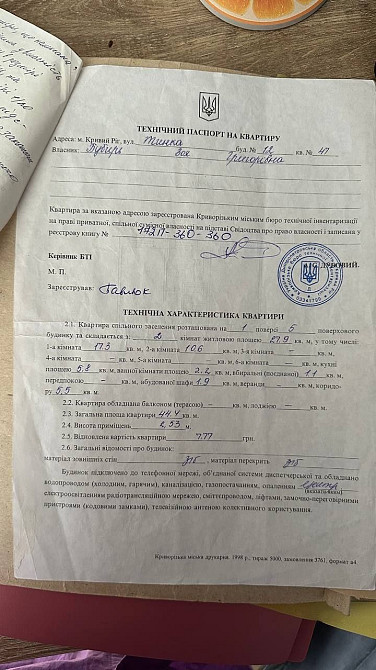 ТЕХНІЧНИЙ ПАСПОРТ НА КВАРТИРУ
Адреса: м. Кривий Ріг, вул. буд. № 12 кв. № 47
Власник: Зоя Григорівна
Квартира за вказаною адресою зареєстрована Криворізьким міським бюро технічної інвентаризації
на праві приватної, спільної сумісної власності на підставі Свідоцтва про право власності і записана у
реєстрову книгу № 360-360
Керівник БТІ
М. П.
Зареєстрував: Павлюк
ТЕХНІЧНА ХАРАКТЕРИСТИКА КВАРТИРИ
2.1. Квартира спільного заселення розташована на 1 поверсі 5 поверхового
будинку та складається з: 2 кімнат житловою площею 27,9 кв. м, у тому числі:
1-а кімната 17,3 кв. м, 2-а кімната 10,6 кв. м, 3-я кімната – кв. м,
4-а кімната – кв. м, 5-а кімната – кв. м, 6-а кімната – кв. м, кухні
площею 5,8 кв. м, ванної кімнати площею 2,2 кв. м, вбиральні (поєднаної) 1,1 кв. м,
передпокою – кв. м, вбудованої шафи 1,9 кв. м, веранди кв. м, коридо-
ру 5,5 кв. м.
2.2. Квартира обладнана балконом (терасою) – кв. м, лоджією – кв. м.
2.3. Загальна площа квартири 44,4 кв. м.
2.4. Висота приміщень 2,53 м.
2.5. Відновлена вартість квартири 777 грн.
2.6. Загальні відомості про будинок:
матеріал зовнішніх стін з/б, матеріал перекрить з/б
Будинок підключено до телефонної мережі, об'єднаної системи диспетчерської та обладнано
водопроводом (холодним, гарячим), каналізацією, газопостачанням, опаленням центр.
(вказати яким)
електроосвітленням радіотрансляційною мережею, сміттєпроводом, ліфтами, замочно-переговорними
пристроями (кодовими замками), телевізійною антеною колективного користування.
Криворізька міська друкарня, 1998 р., тираж 5000, замовлення 3761, формат а4